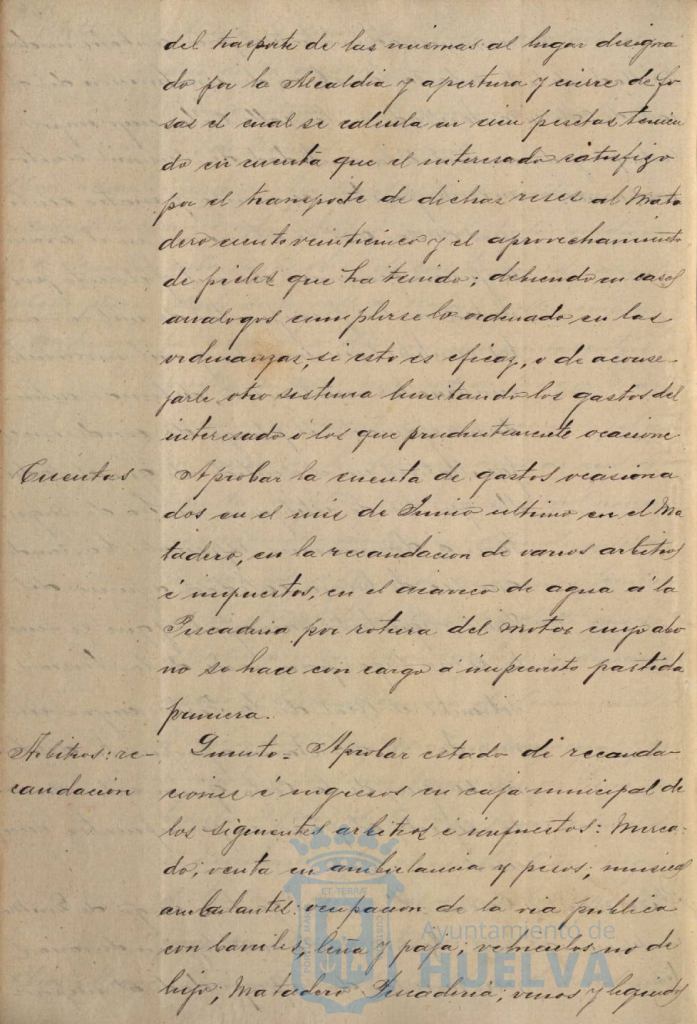 del trasporte de las mismas al lugar designa
do por la Alcaldia y apertura y cierre de fo
sas el cual se calcula en cien pesetas tenien
do en cuenta que el interesado satisfizo
por el transporte de dichas reses al Mata
dero ciento veinticinco y el aprovechamiento
de pieles que ha tenido; debiendo en casos
analogos cumplirse lo ordenado en las
ordenanzas, si esto es eficaz, o de aconse
jarle otro sistema limitando los gastos del
interesado á los que prudentemente ocasione
Cuentas
Aprobar la cuenta de gastos ocasiona
dos en el mes de Junio ultimo en el Ma
tadero, en la recaudacion de varios arbitrios
é impuestos, en el acarreo de agua á la
Pescaderia por rotura del motor cuyo abo
no se hace con cargo a imprevisto partida
primera.
Arbitros: re-
caudación
Aprobar estado de recauda-
ciones é ingresos en caja municipal de
los siguientes arbitrios é impuestos: Merca-
do; venta en ambulancia y pesos; musicas
ambulantes; ocupacion de la via publica
con barriles, leña y paja; vehiculos no de
lujo; Matadero Pescaderia; vinos y liquidos
ET TERRAE
Ayuntamiento de
HUELVA